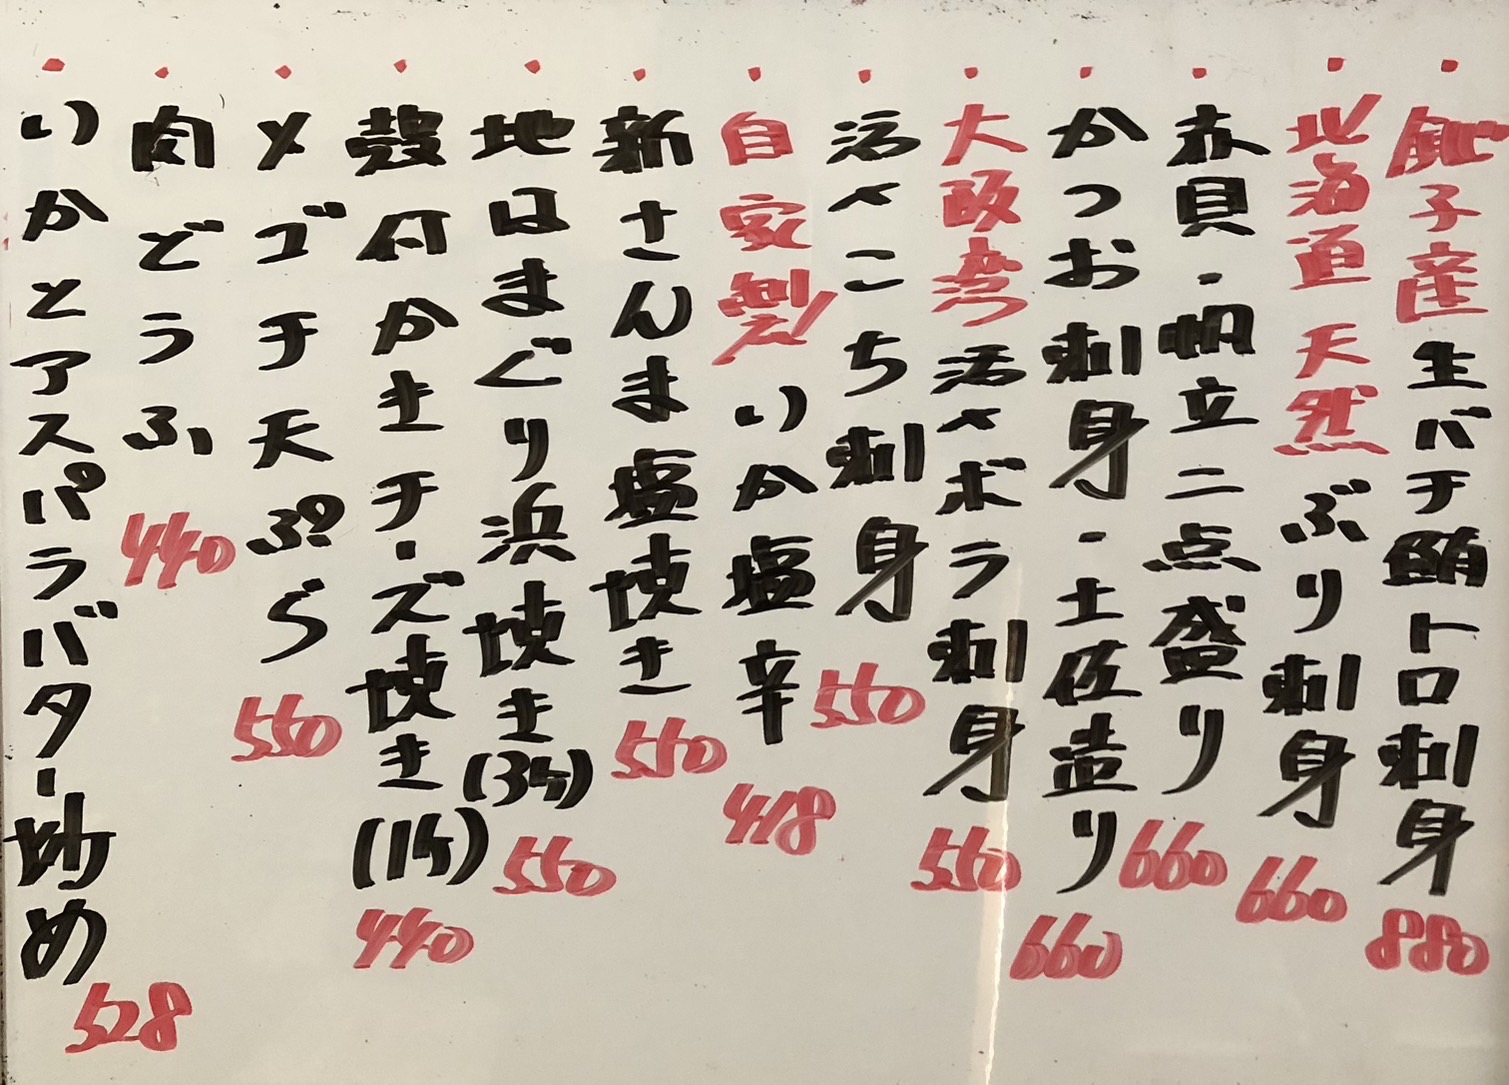 ・銚子産 生バチ鮪トロ刺身 880
・北海道 天然 ぶり刺身 660
・赤貝・帆立二点盛り 660
・かつお刺身・土佐造り 660
・大阪湾 活〆ボラ刺身 550
・活〆こち刺身 550
・自家製 いか塩辛 418
・新さんま塩焼き 550
・地はまぐり浜焼き(3ケ) 550
・殻付かきチーズ焼き(1ケ) 440
・メゴチ天ぷら 550
・肉どうふ 440
・いかとアスパラバター炒め 528